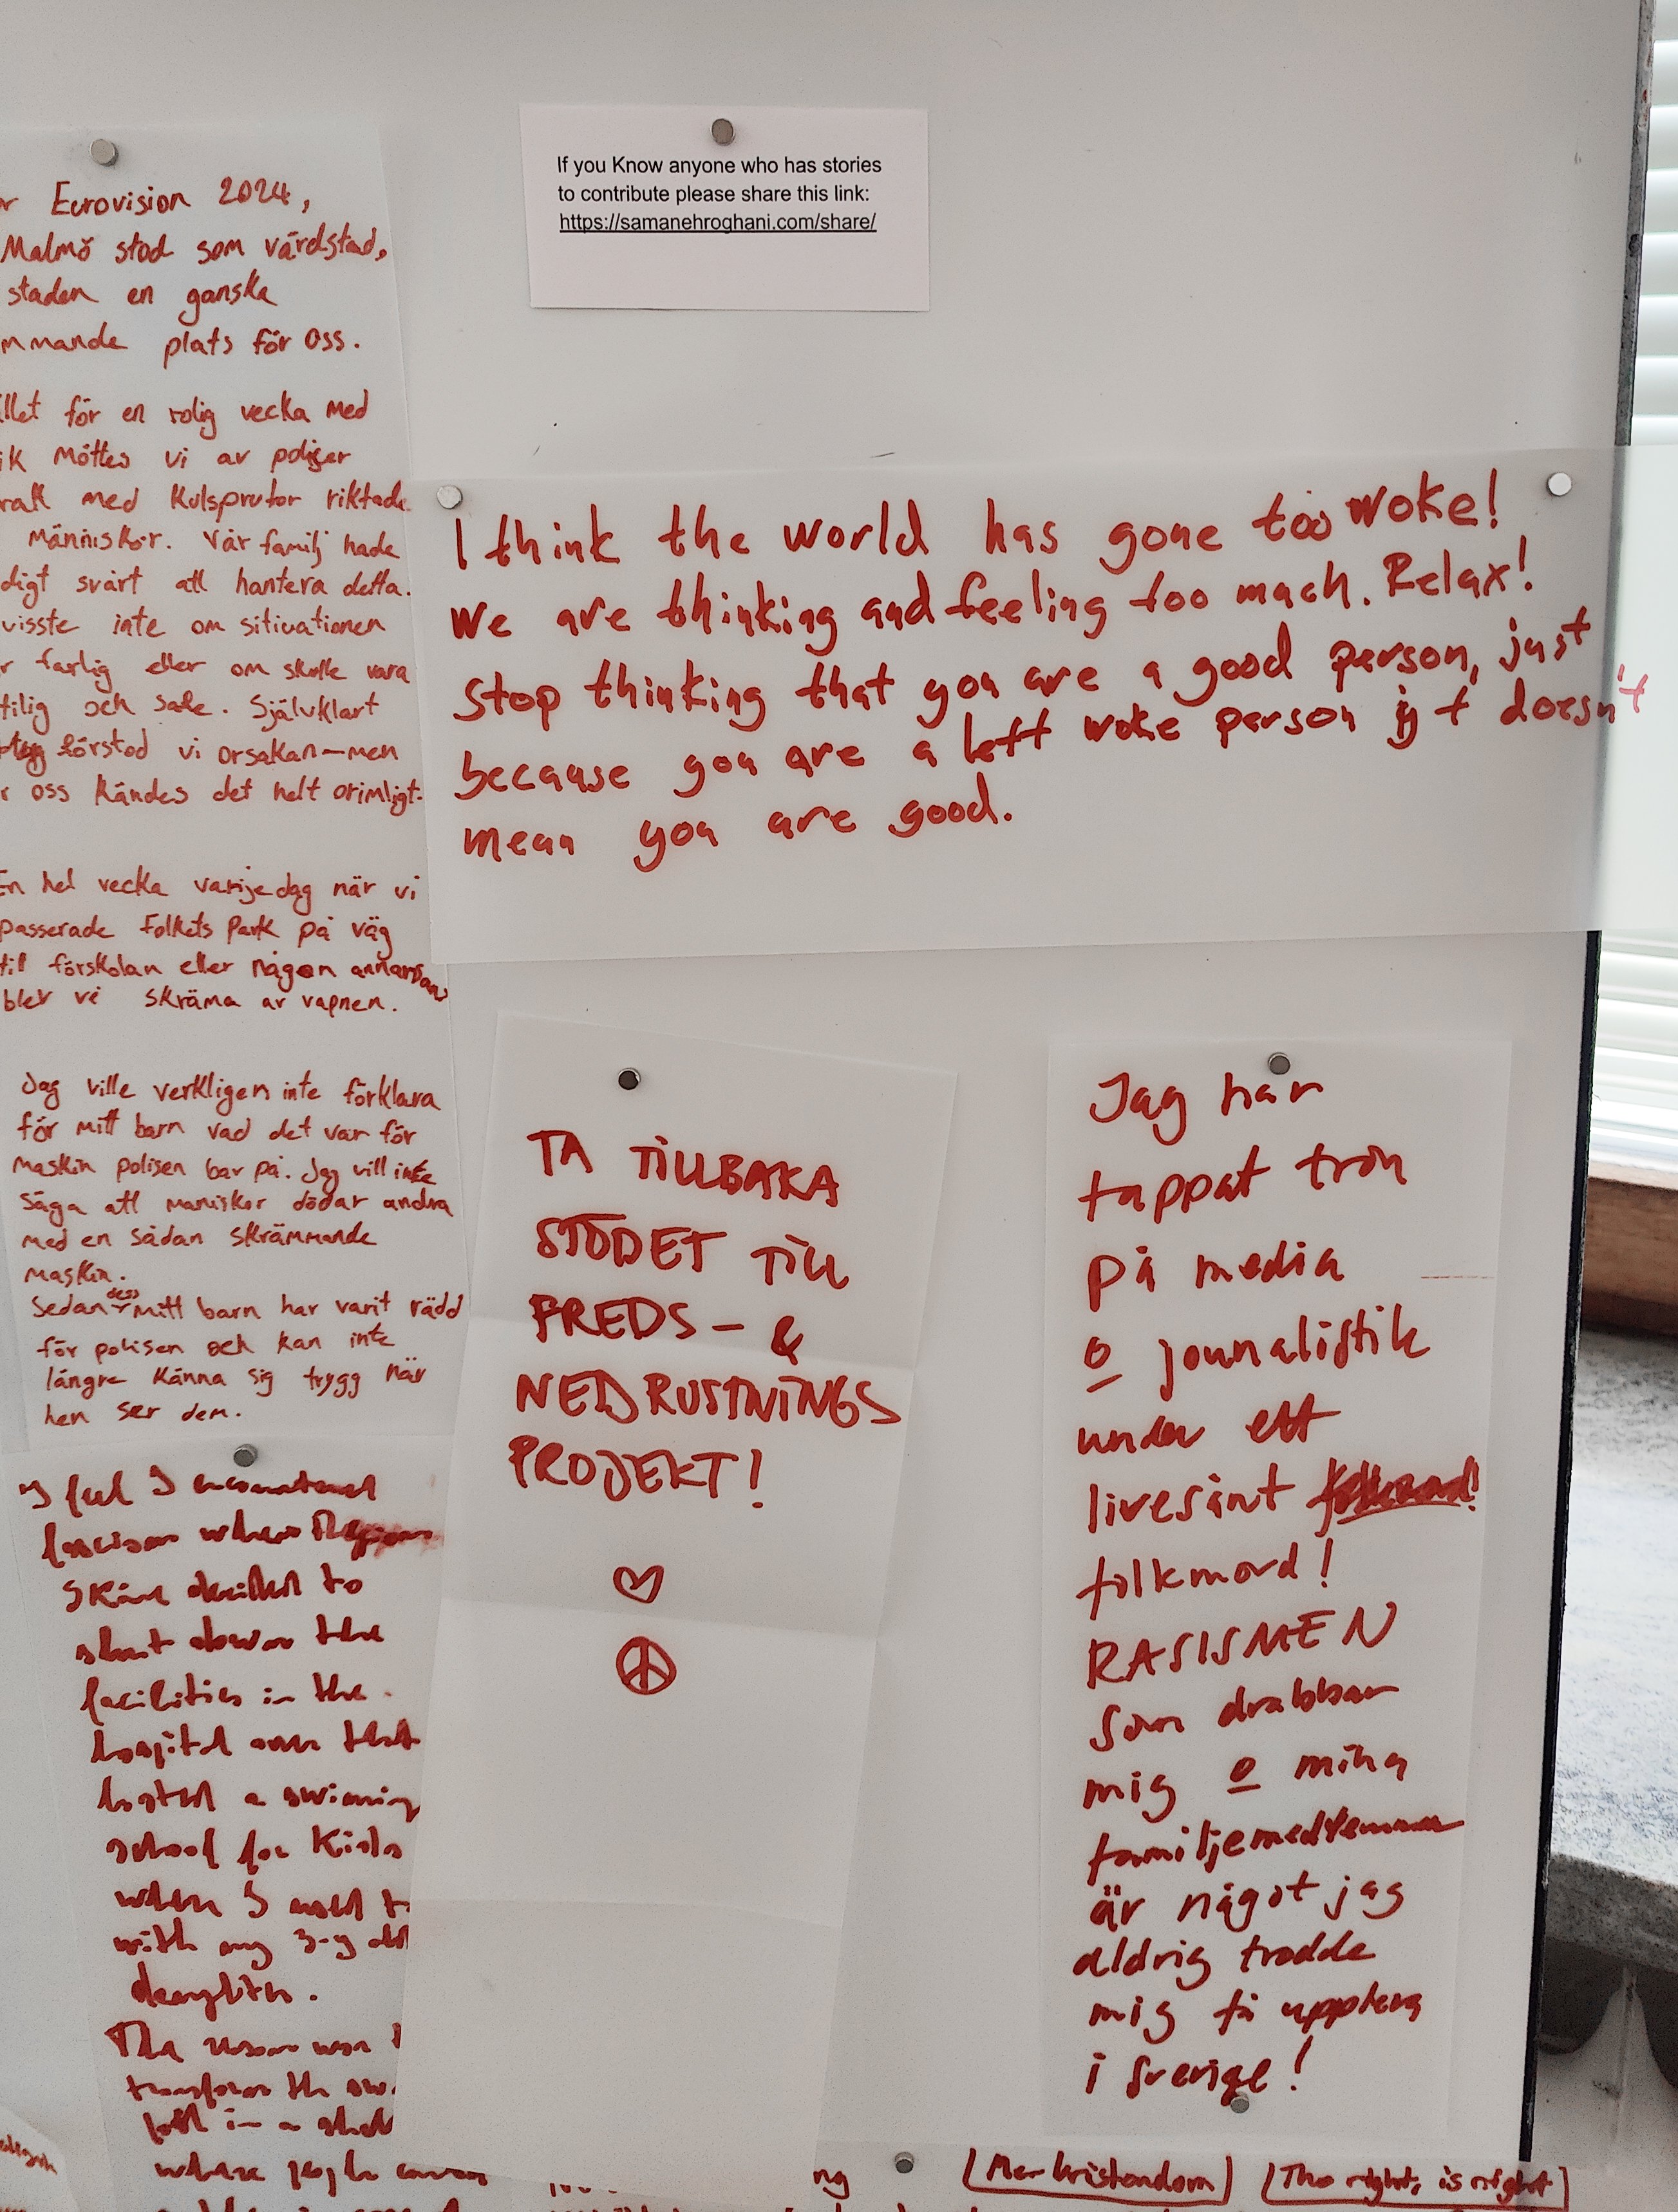 If you Know anyone who has stories
to contribute please share this link:
https://samanehroghani.com/share/
r Eurovision 2024,
Malmö stod som värdstad,
staden en ganska
mmande plats för oss.
llet för en rolig vecka med
ik möttes vi av poliser
rallt med Kulsprutor riktade
människor. Vår familj hade
digt svårt att hantera detta.
visste inte om sitiuationen
r farlig eller om skulle vara
tilig och safe. Självklart
förstod vi orsakan—men
r oss Kändes det helt orimligt.
En hel vecka varije dag när vi
passerade Folkets Park på väg
till förskolan eller någon annanstans
blev vi skräma av vapnen.
Jag ville verkligen inte förklara
för mitt barn vad det var för
maskin polisen bar på. Jag vill inte
säga att maniskor dödar andra
med en sådan skrämmande
maskin.
Sedan dess mitt barn har varit rädd
för polisen och kan inte
längre Känna sig trygg när
hen ser dem.
I think the world has gone too woke!
We are thinking and feeling too mach. Relax!
Stop thinking that you are a good person, just
because you are a left woke person it doesn't
mean you are good.
TA TILLBAKA
STÖDET TILL
FREDS- &
NEDRUSTNINGS
PROJEKT!
Jag har
tappat tron
på media
o jounalistik
under ett
livesänt
folkmord!
RASISMEN
som drabbar
mig o mina
familjemedlemmar
är något jag
aldrig trodde
mig få uppleva
i Sverige!
I feel I encountered
fascism when Region
Skåne decided to
shut down the
facilities in the
hospital area that
hosted a swiming
school for Kids
when I used t
with my 3-y old
daughter.
The reason was t
transform the sw
in a shel
where people
ng
Mer kristendom
The right, is right